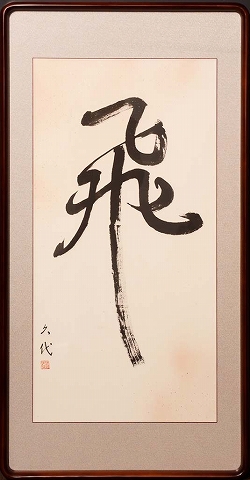 飛
久代